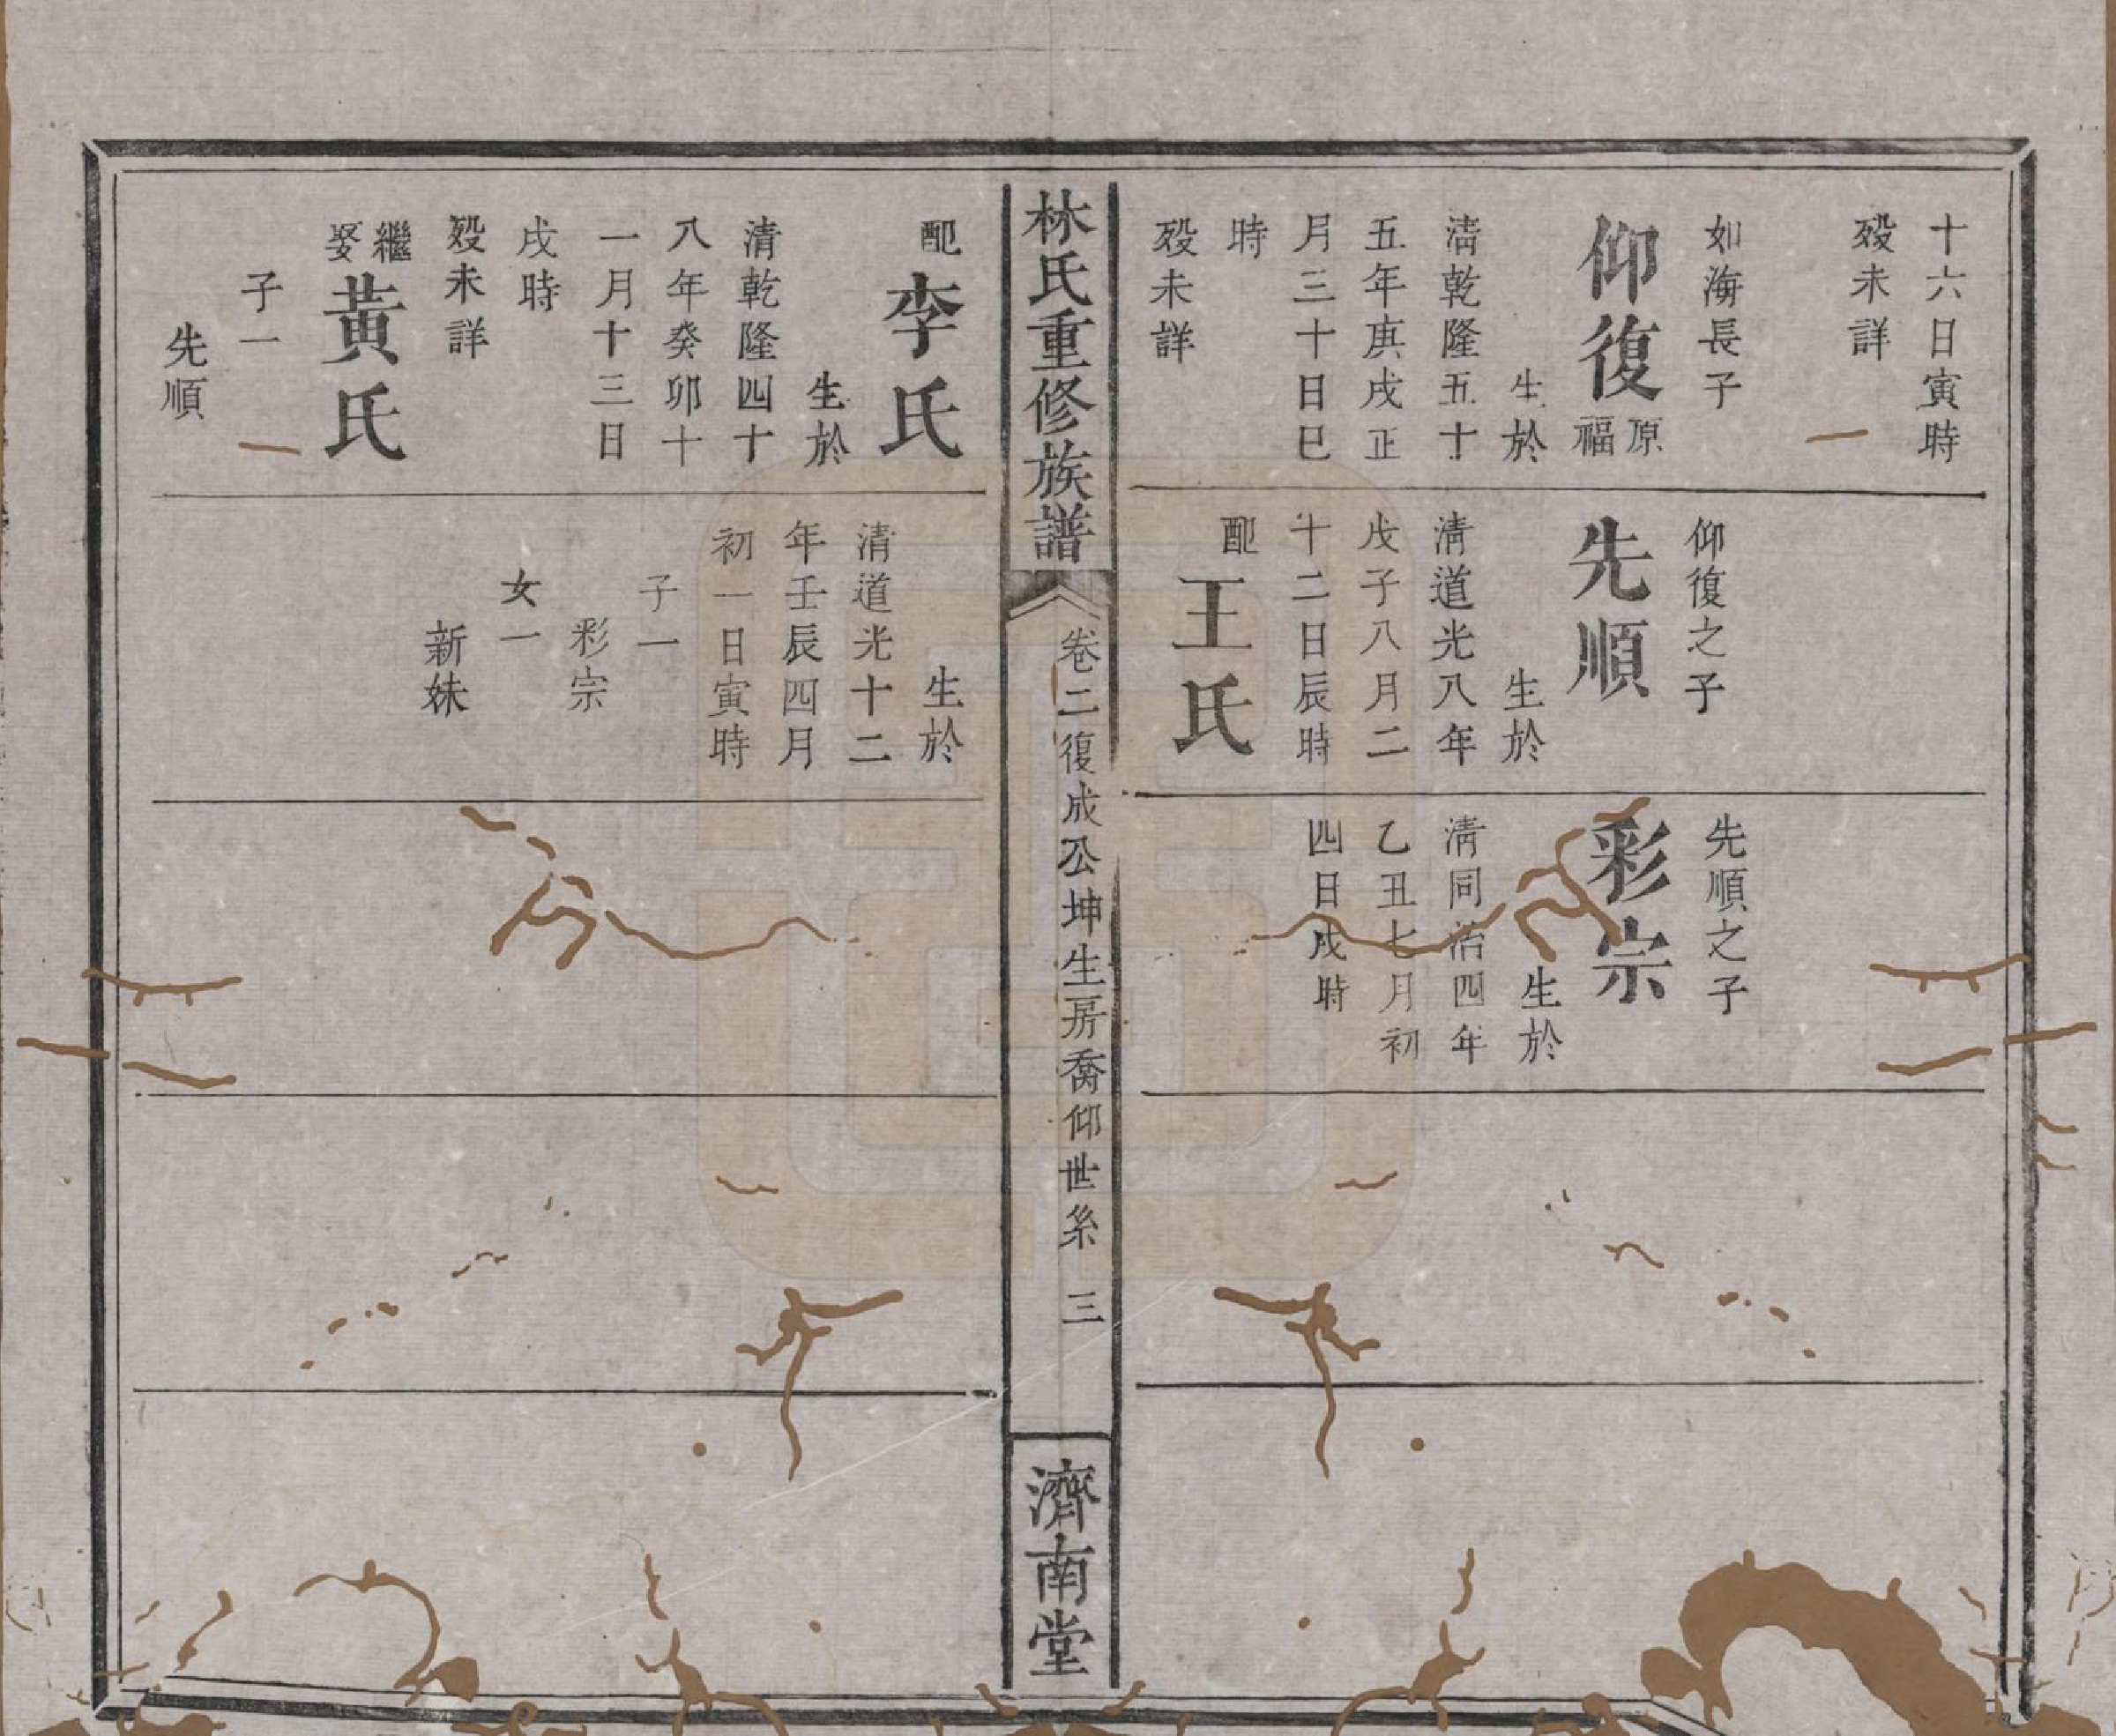 十六日寅時
歿未詳
如海長子
仰復原福
生於
清乾隆五十
五年庚戌正
月三十日巳
時
歿未詳
仰復之子
先順
生於
清道光八年
戊子八月二
十二日辰時
配王氏
先順之子
彩宗
生於
清同治四年
乙丑七月初
四日戌時
林氏重修族譜
卷二復成公坤生房喬仰世系 三
濟南堂
配李氏
生於
清乾隆四十
八年癸卯十
一月十三日
戌時
歿未詳
繼娶黃氏
子一
先順
生於
清道光十二
年壬辰四月
初一日寅時
子一
彩宗
女一
新妹